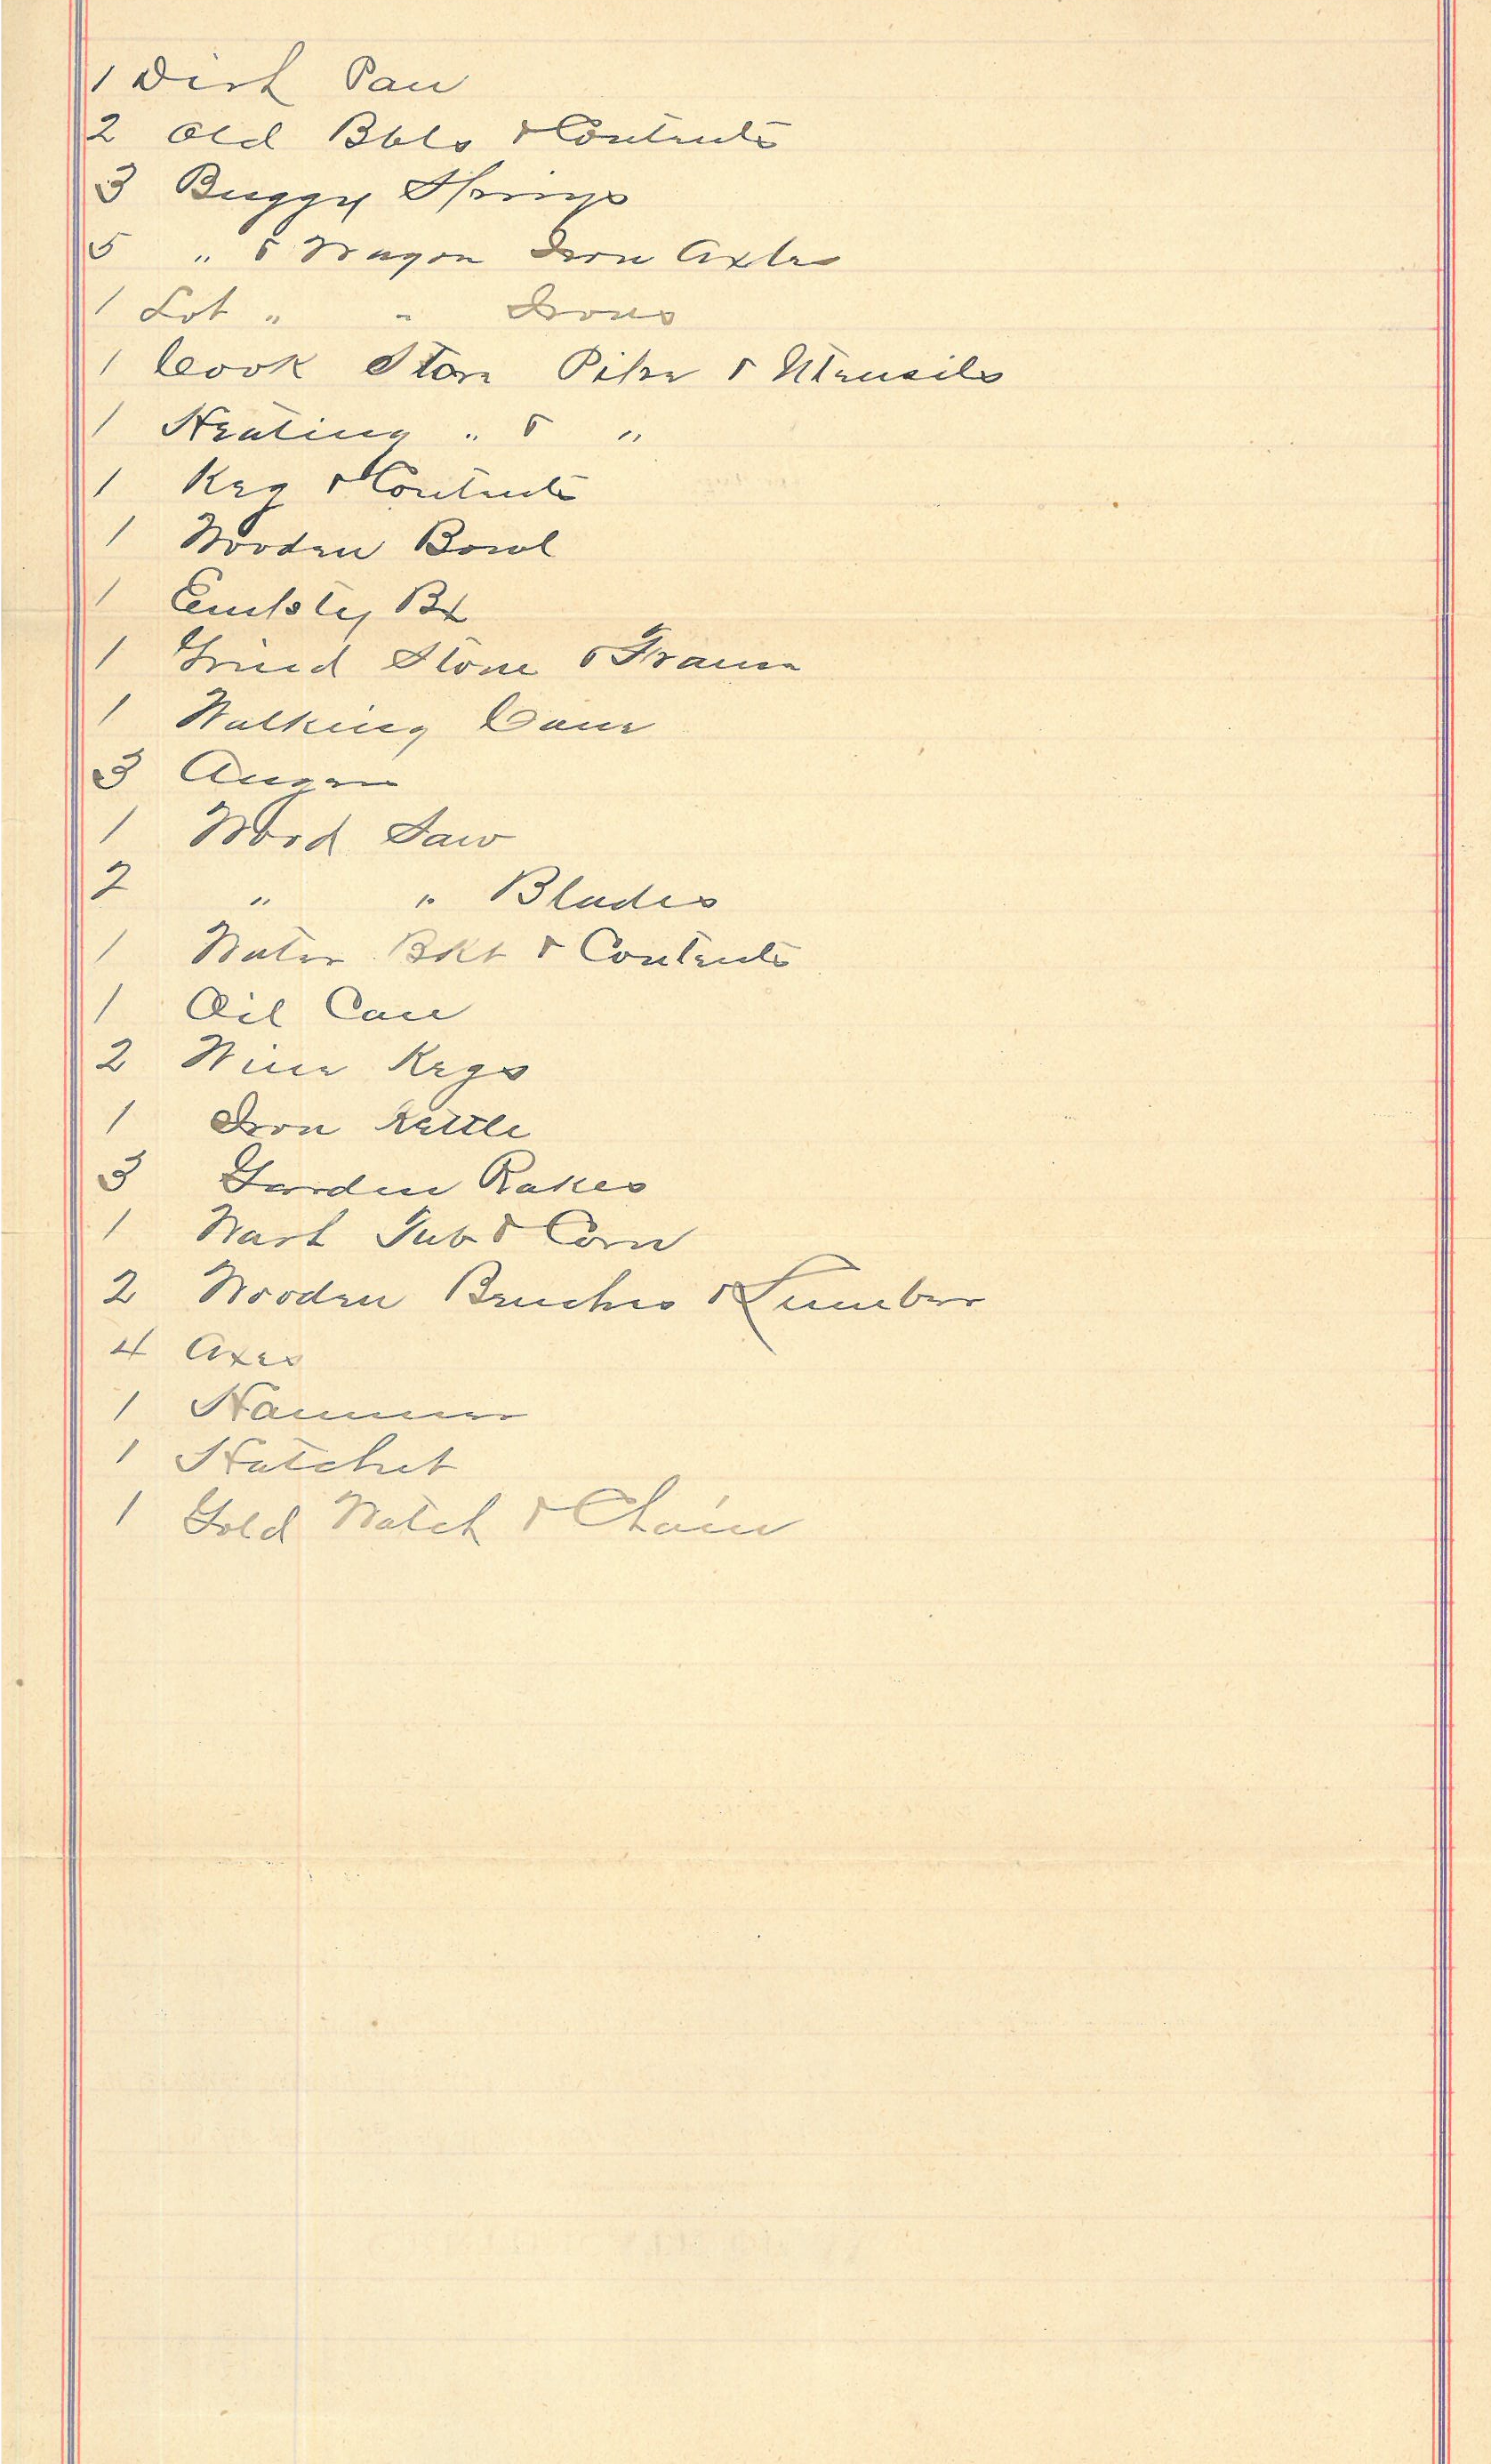 1 Dish Pan
2 Old Bbls & Contents
3 Buggy Springs
5 " & Wagon Iron Axles
1 Lot " " Irons
1 Cook Stove Pipe & Utensils
1 Heating " & "
1 Keg & Contents
1 Wooden Bowl
1 Empty Bx
1 Grind Stone & Frame
1 Walking Cane
3 Augers
1 Wood Saw
2 " " Blades
1 Water Bkt & Contents
1 Oil Can
2 Wine Kegs
1 Iron Kettle
3 Garden Rakes
1 Wash Tub & Corn
2 Wooden Benches & Lumber
4 Axes
1 Hammer
1 Hatchet
1 Gold Watch & Chain